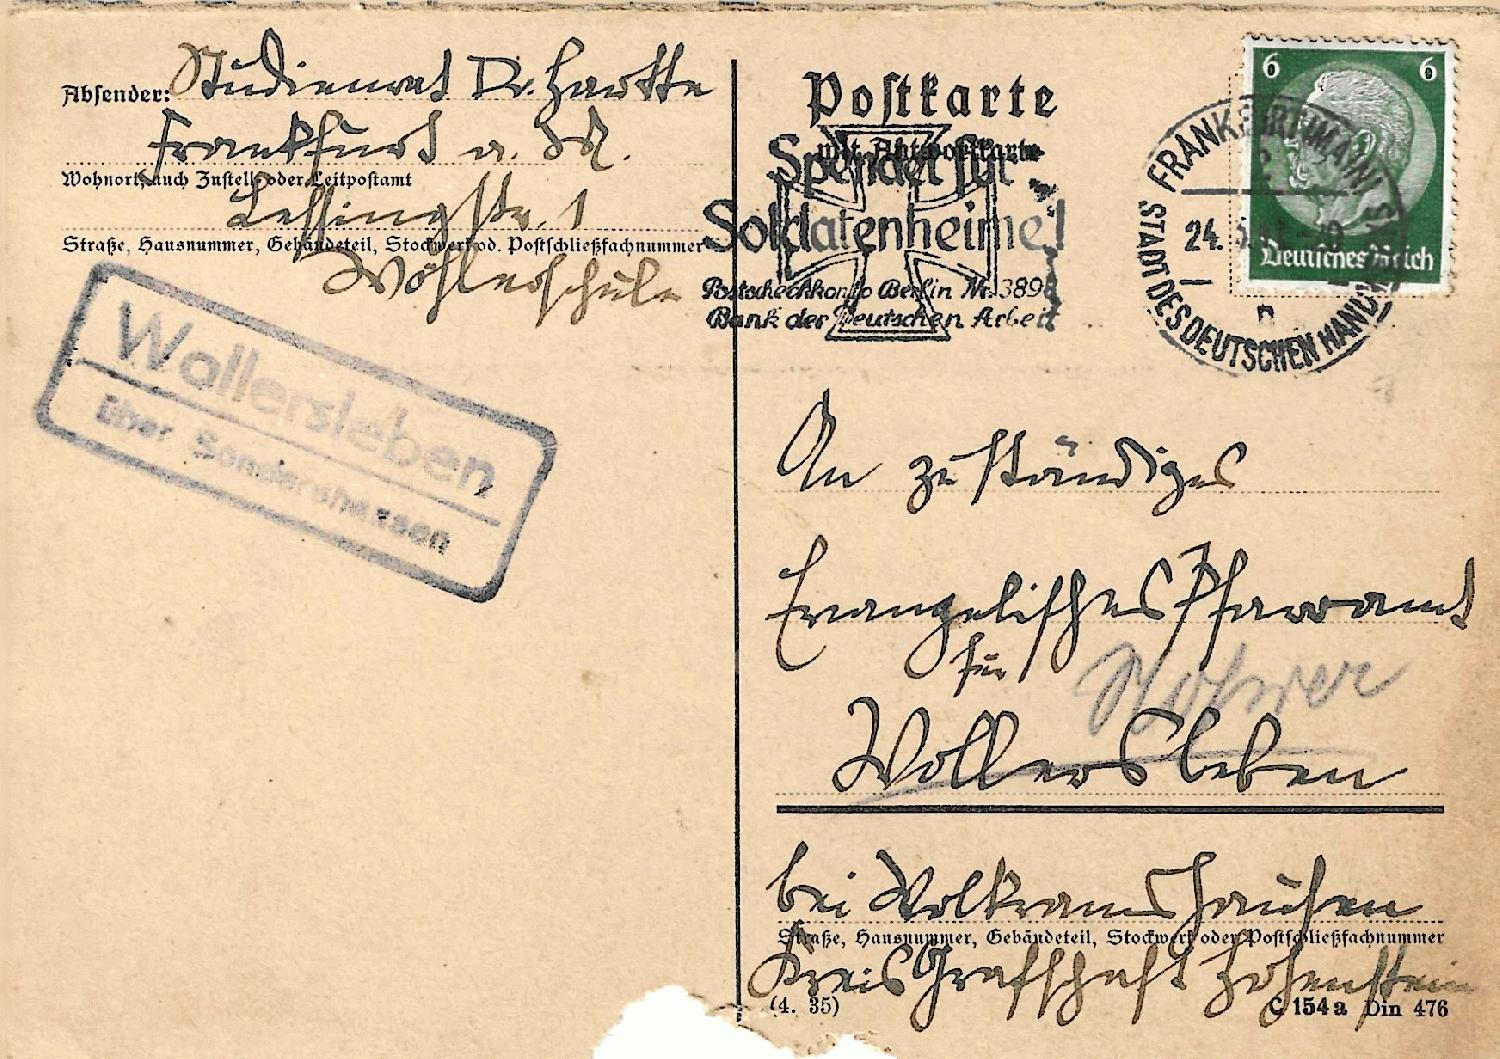 Absender: Studienrat Dr. Hartke
Frankfurt a. M.
Wohnort, auch Zustell- oder Leitpostamt
Lessingstr. 1
Straße, Hausnummer, Gebäudeteil, Stockwerk od. Postschließfachnummer
Wöhlerschule
Wollersleben
über Sondershausen
Postkarte
mit Antwortkarte
Spendet für
Soldatenheime!
Postscheckkonto Berlin Nr. 3898
Bank der Deutschen Arbeit
6 6
Deutsches Reich
FRANKFURT (MAIN) 1
24. 5. 41
n
STADT DES DEUTSCHEN HANDWERKS
An zuständiges
Evangelisches Pfarramt
für
Wollersleben
bei Wolkramshausen
Straße, Hausnummer, Gebäudeteil, Stockwerk oder Postschließfachnummer
Kreis Grafschaft Hohenstein
(4. 35)
C 154a Din 476